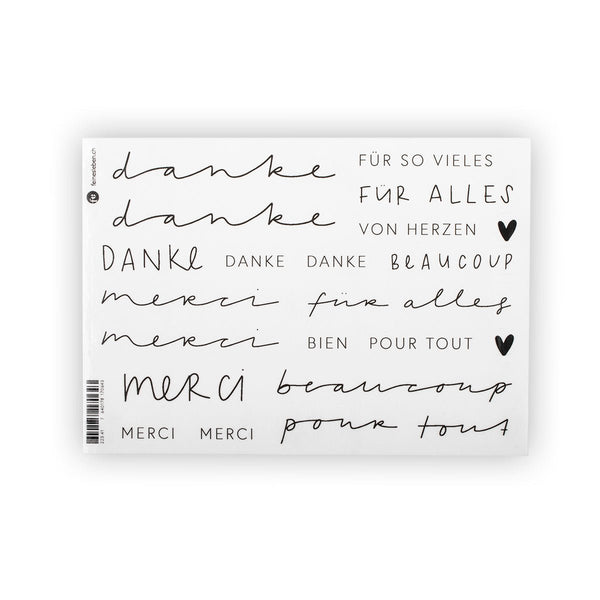 danke FÜR SO VIELES
FÜR ALLES
danke VON HERZEN
DANKe DANKE DANKE BeAUCOUP
merci für alles
merci BIEN POUR TOUT
merci beaucoup
MERCI MERCI pour tout
feinesleben.ch